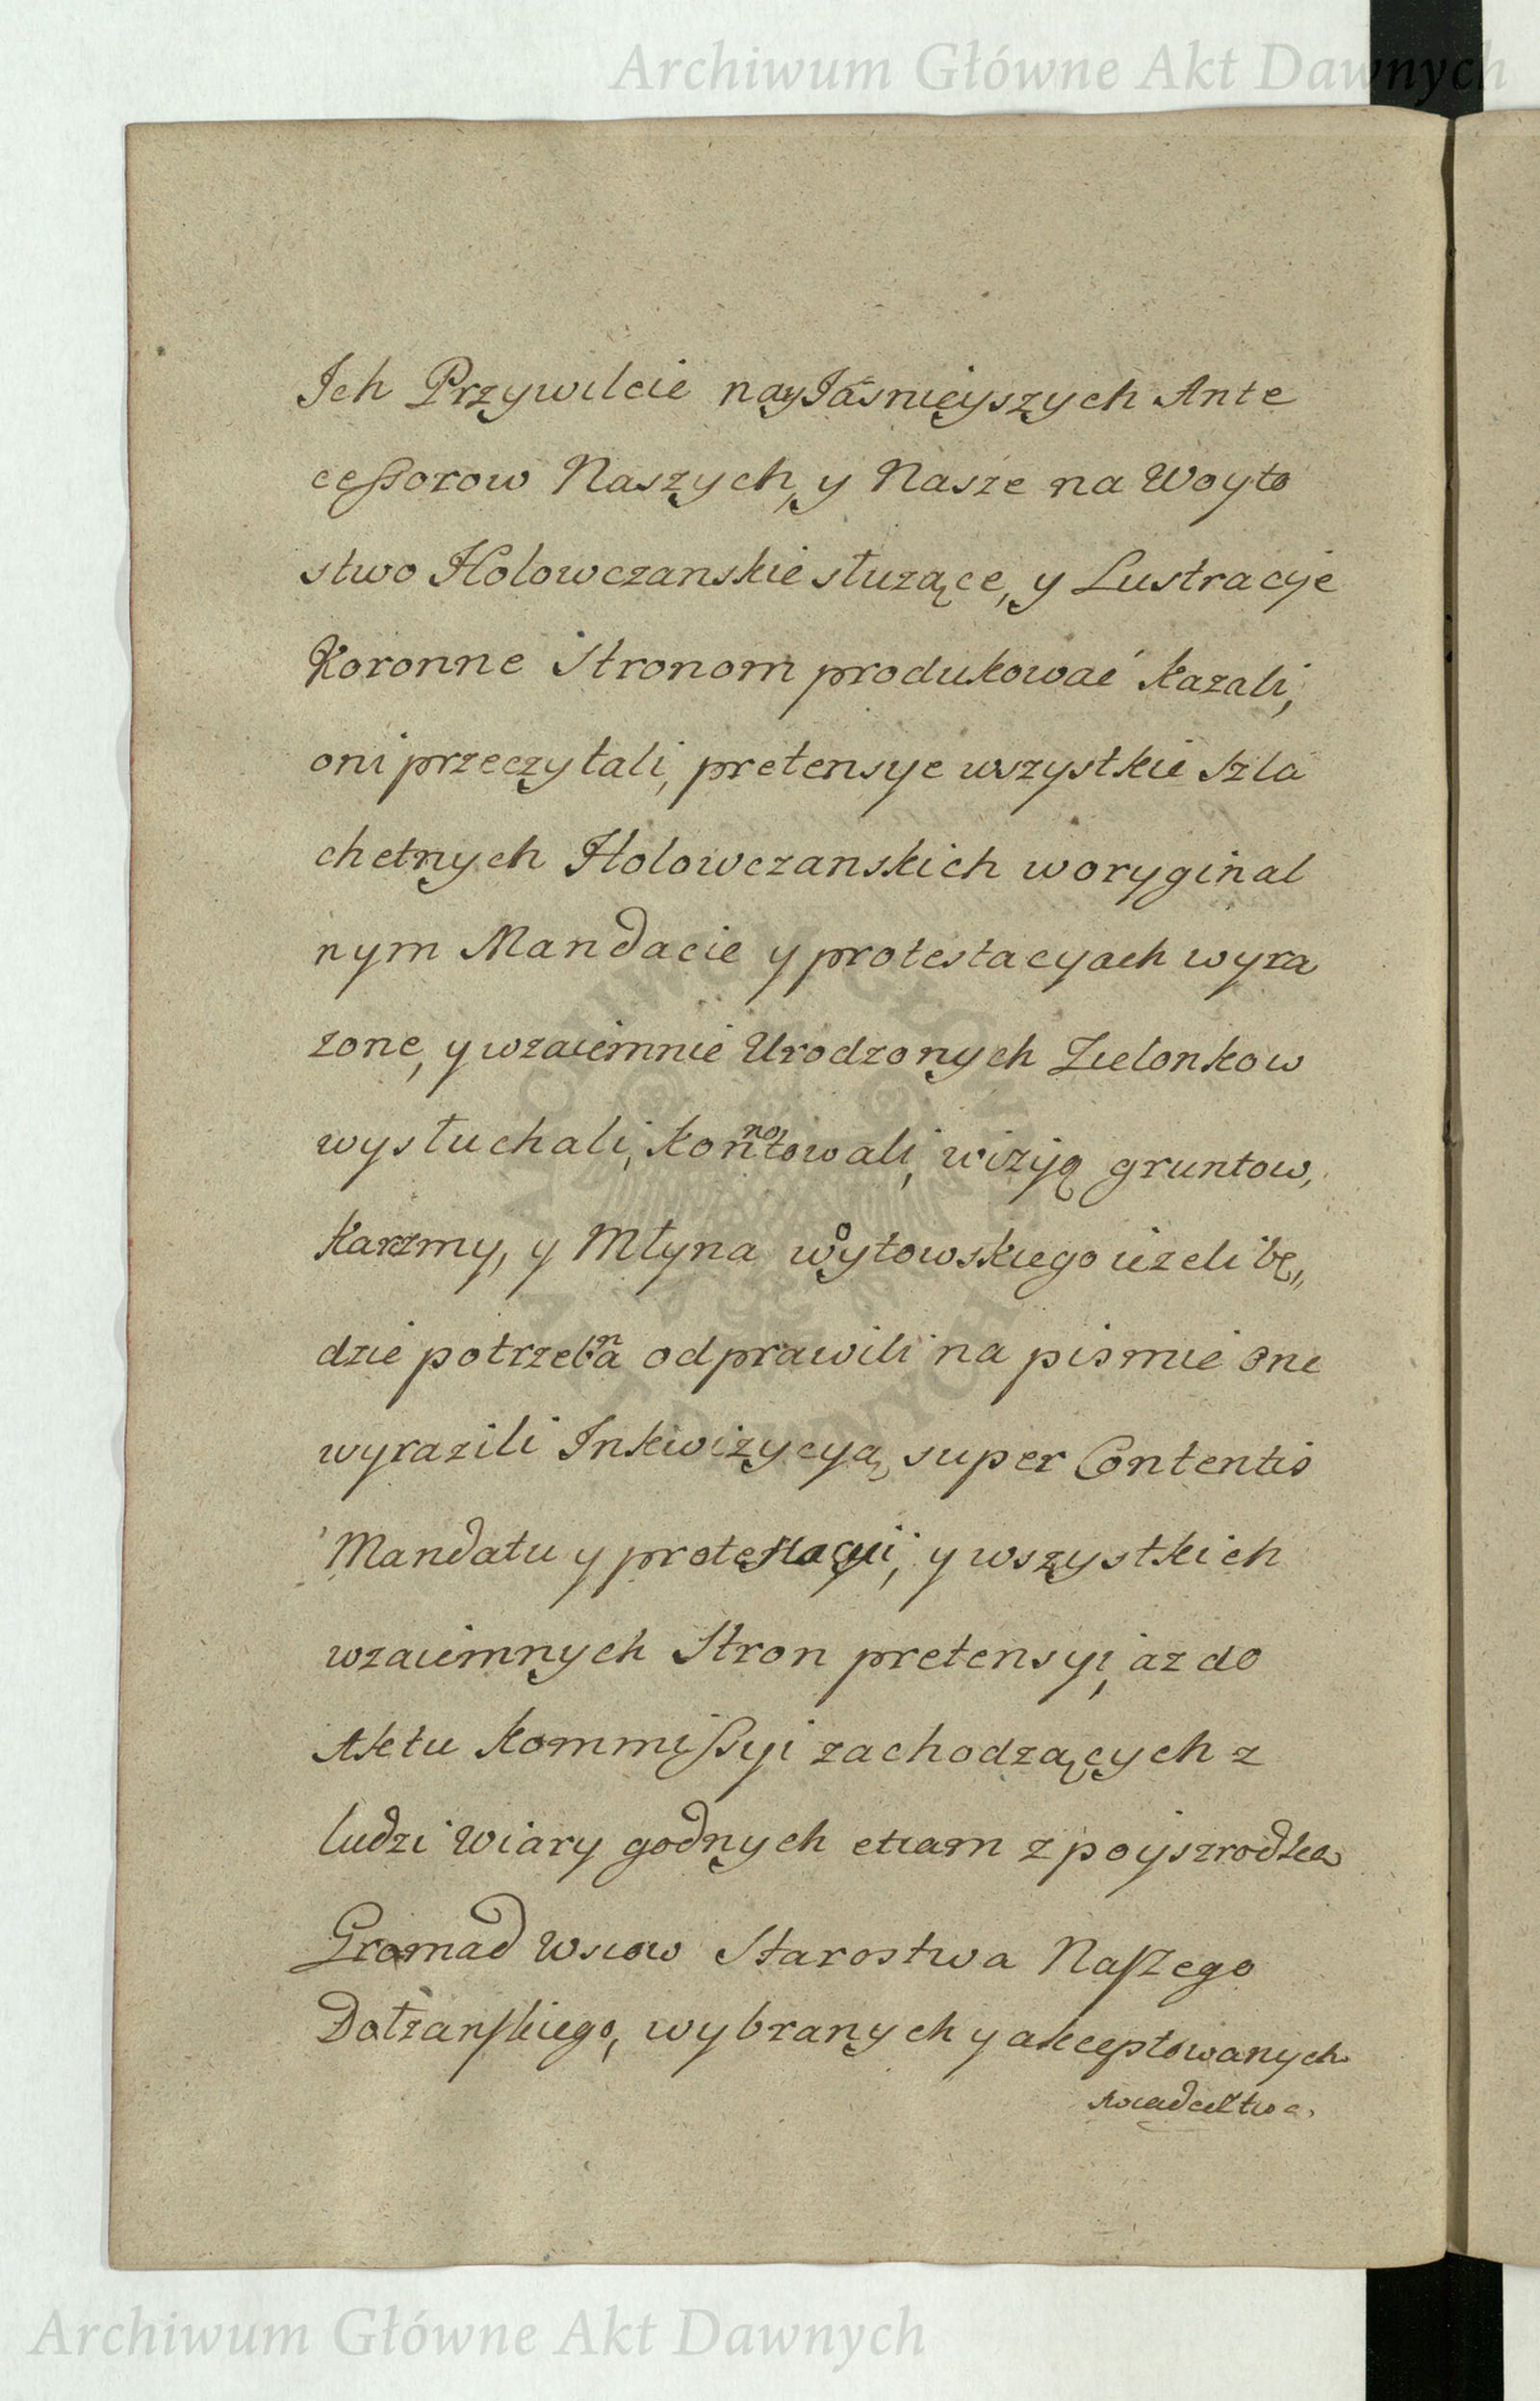 Archiwum Główne Akt Dawnych
Ich Przywileie nayJaśnieyszych Ante
ceſsorow Naszych, y Nasze na Woyto
stwo Holowczanskie służące, y Lustracije
Koronne Stronom produkować kazali,
oni przeczytali, pretensye wszystkie Szla
chetnych Holowczanskich woryginal
nym Mandacie y protestacyach wyra
zone, y wzaiemnie Urodzonych Zielonkow
wysłuchali, konnotowali, wizyą gruntow,
karzmy, y Młyna woytowskiego ieżeli bę„
dzie potrzebna odprawili na pismie one
wyrazili Inkwizycyą, super Contentis
Mandatu y protestacyi, y wszystkich
wzaiemnych Stron pretensyi, az do
Aktu Kommiſsyi zachodzących z
ludzi wiary godnych etiam z poyszrodka
Gromad Wsiow Starostwa Naſzego
Dolzanſkiego, wybranych y akceptowanych
Archiwum Główne Akt Dawnych